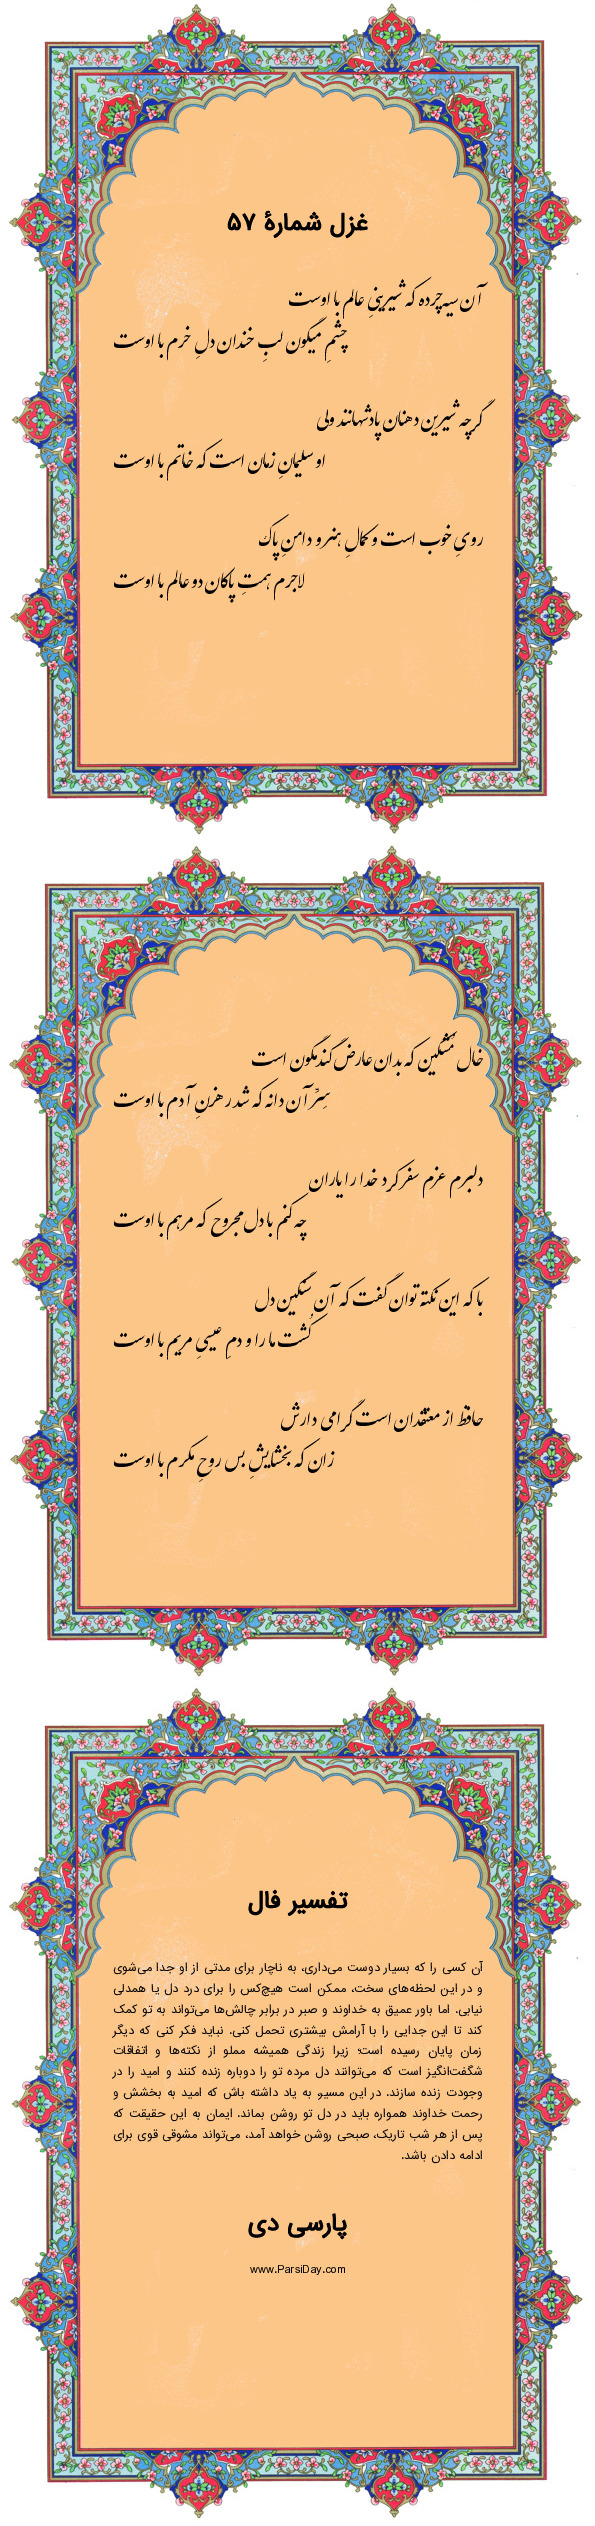 غزل شمارهٔ ۵۷
آن سیه‌چرده که شیرینیِ عالم با اوست
چشمِ میگون لبِ خندان دلِ خرم با اوست
گرچه شیرین دهنان پادشهانند ولی
او سلیمانِ زمان است که خاتم با اوست
رویِ خوب است و کمالِ هنر و دامنِ پاک
لاجرم همتِ پاکان دو عالم با اوست
خال مُشکین که بدان عارض گندمگون است
سِرِّ آن دانه که شد رهزنِ آدم با اوست
دلبرم عزم سفر کرد خدا را یاران
چه کنم با دل مجروح که مرهم با اوست
با که این نکته توان گفت که آن سنگین دل
کُشت ما را و دمِ عیسیِ مریم با اوست
حافظ از معتقدان است گرامی دارش
زان که بخشایشِ بس روحِ مکرم با اوست
تفسیر فال
آن کسی را که بسیار دوست می‌داری، به ناچار برای مدتی از او جدا می‌شوی
و در این لحظه‌های سخت، ممکن است هیچ‌کس را برای درد دل یا همدلی
نیابی. اما باور عمیق به خداوند و صبر در برابر چالش‌ها می‌تواند به تو کمک
کند تا این جدایی را با آرامش بیشتری تحمل کنی. نباید فکر کنی که دیگر
زمان پایان رسیده است؛ زیرا زندگی همیشه مملو از نکته‌ها و اتفاقات
شگفت‌انگیز است که می‌توانند دل مرده تو را دوباره زنده کنند و امید را در
وجودت زنده سازند. در این مسیر، به یاد داشته باش که امید به بخشش و
رحمت خداوند همواره باید در دل تو روشن بماند. ایمان به این حقیقت که
پس از هر شب تاریک، صبحی روشن خواهد آمد، می‌تواند مشوقی قوی برای
ادامه دادن باشد.
پارسی دی
www.ParsiDay.com